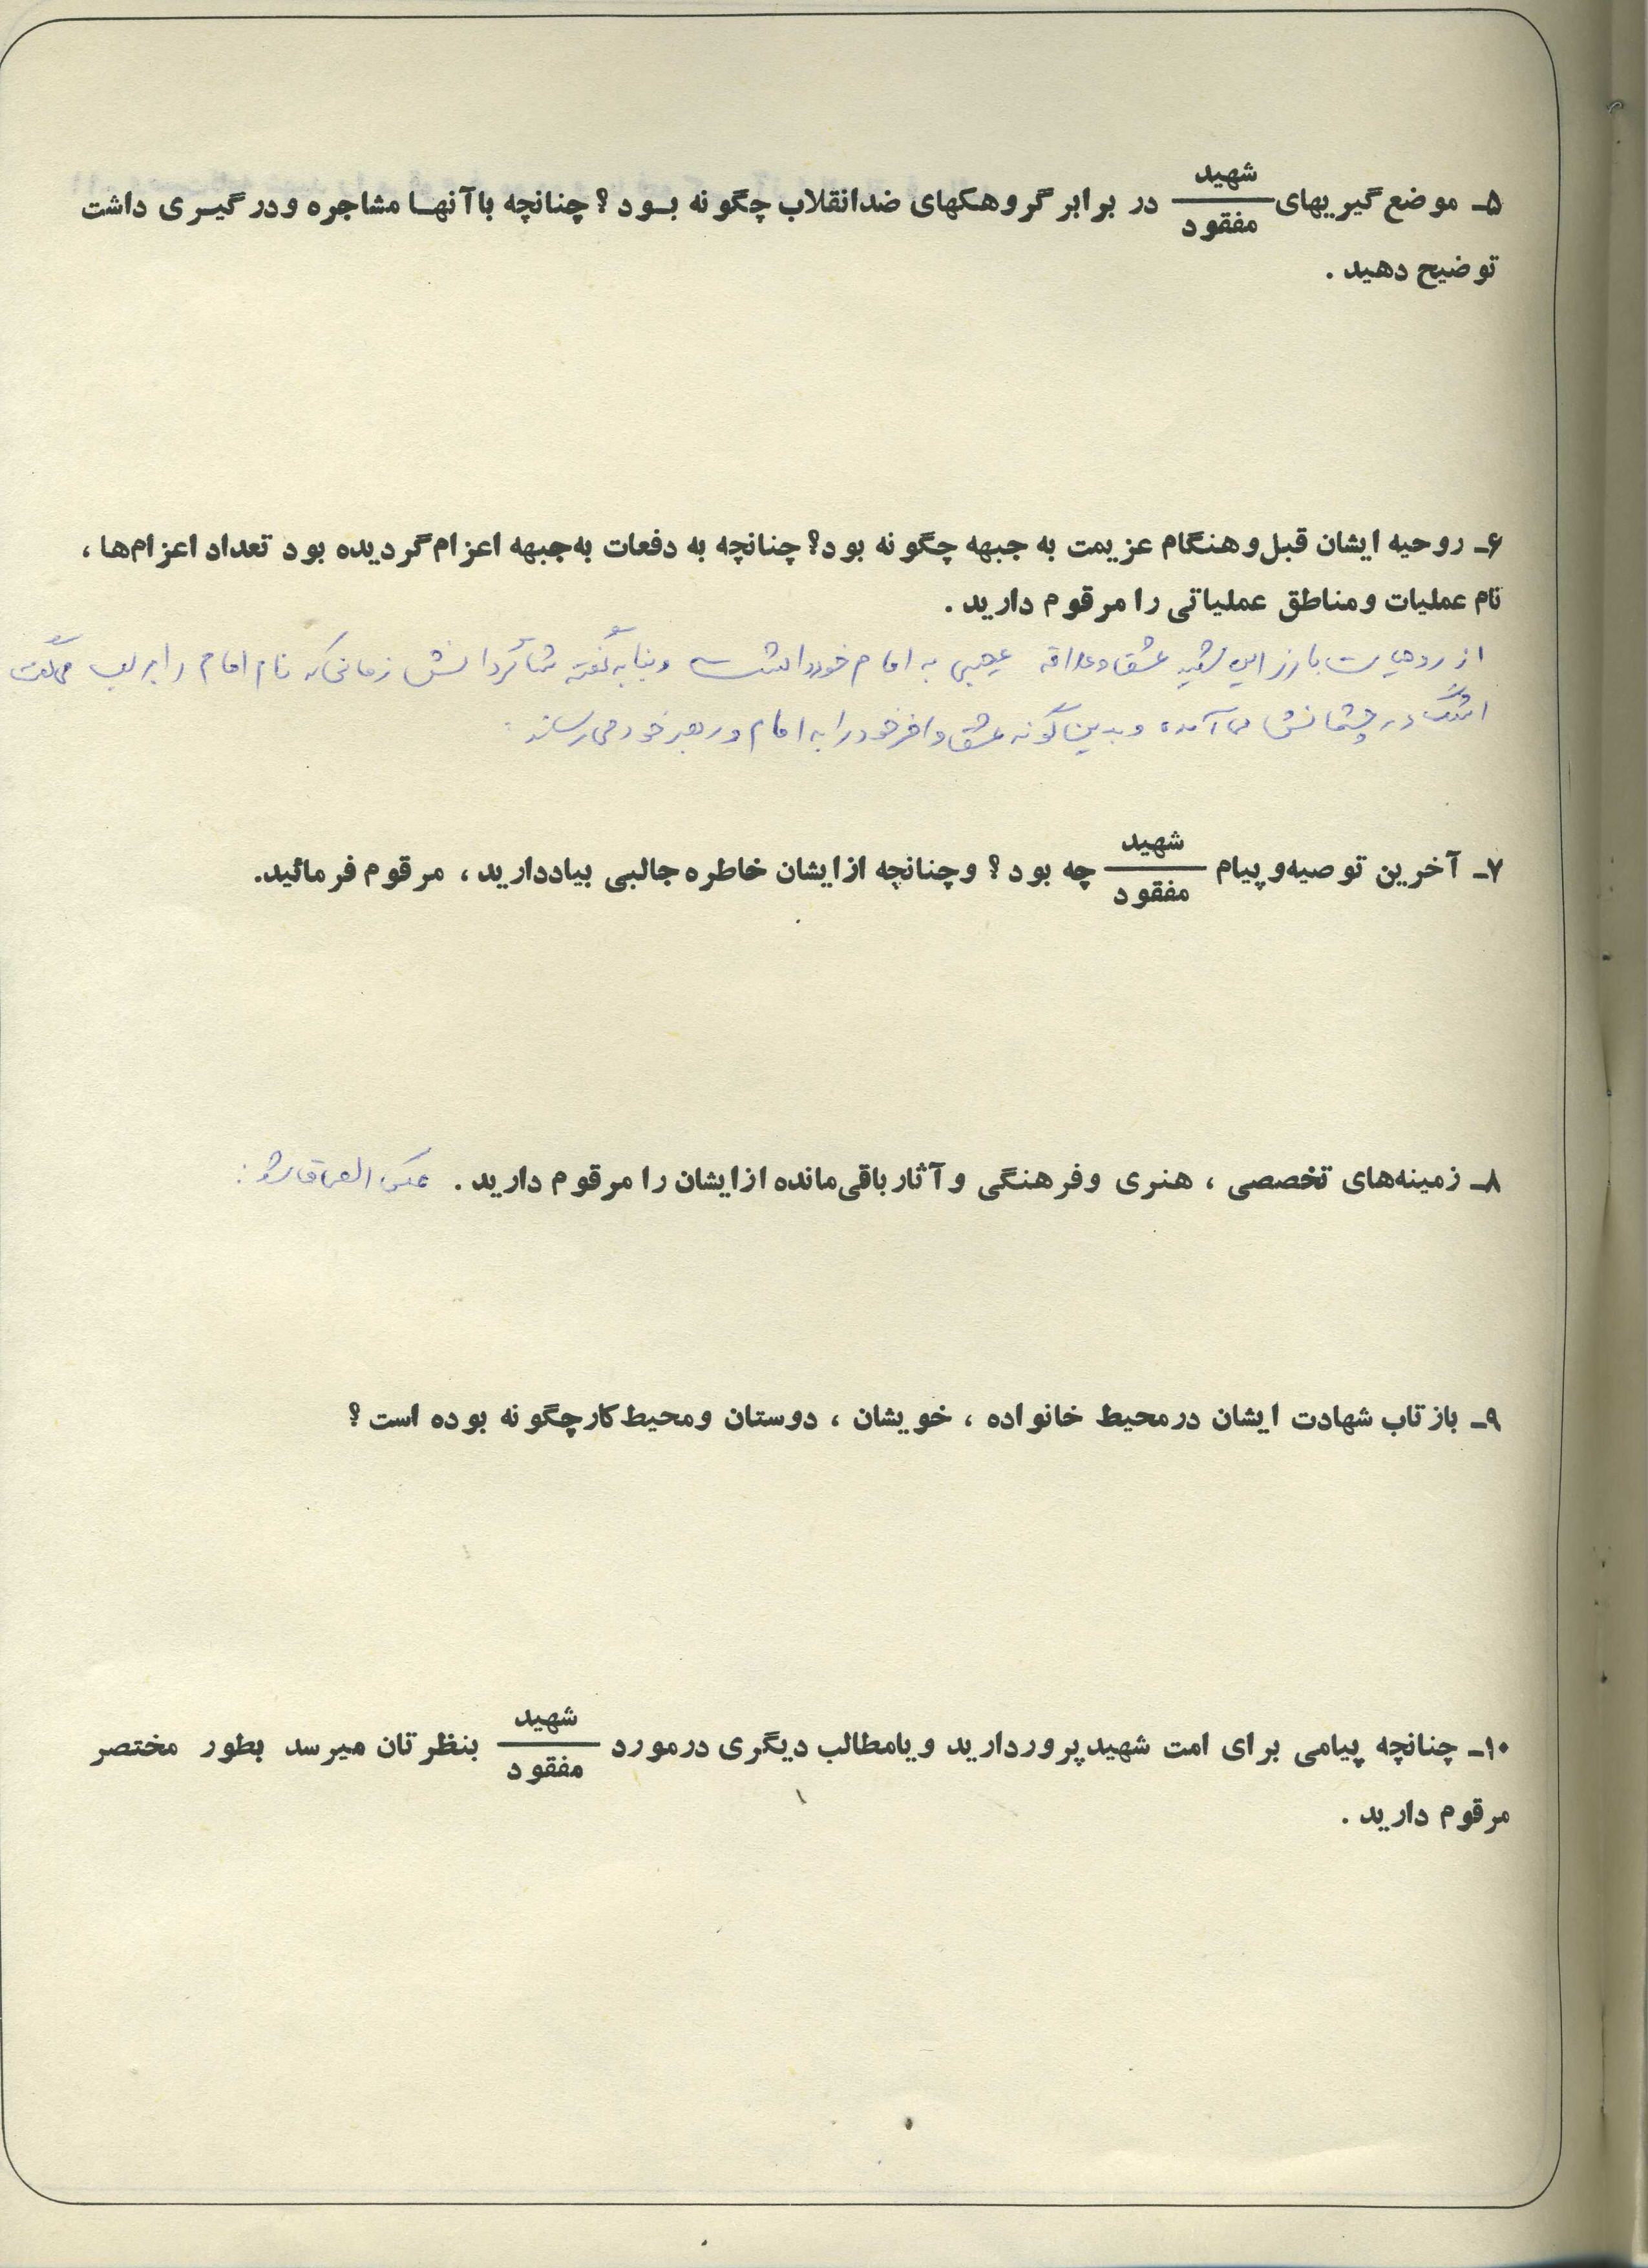 ۵ـ موضع‌گیریهای شهید / مفقود در برابر گروهکهای ضدانقلاب چگونه بـود؟ چنانچه باآنهـا مشاجره ودرگیـری داشت
توضیح دهید .
۶ـ روحیه ایشان قبل‌وهنگام عزیمت به جبهه چگونه بود؟ چنانچه به دفعات به‌جبهه اعزام‌گردیده بود تعداد اعزام‌ها ،
نام عملیات ومناطق عملیاتی را مرقوم دارید .
از روحیات بارز این شهید عشق و علاقه عجیبی به امام خود داشت و بنا به گفته شاگردانش زمانی که نام امام را بر لب می‌گفت
اشک در چشمانش می‌آمده و بدین گونه عشق وافر خود را به امام و رهبر خود می‌رساند
۷ـ آخرین توصیه‌وپیام شهید / مفقود چه بود؟ وچنانچه ازایشان خاطره جالبی بیاددارید، مرقوم فرمائید.
۸ـ زمینه‌های تخصصی ، هنری وفرهنگی وآثارباقی‌مانده ازایشان را مرقوم دارید . عکس
۹ـ بازتاب شهادت ایشان درمحیط خانواده ، خویشان ، دوستان ومحیط‌کارچگونه بوده است؟
۱۰ـ چنانچه پیامی برای امت شهیدپروردارید ویامطالب دیگری درمورد شهید / مفقود بنظرتان میرسد بطور مختصر
مرقوم دارید .